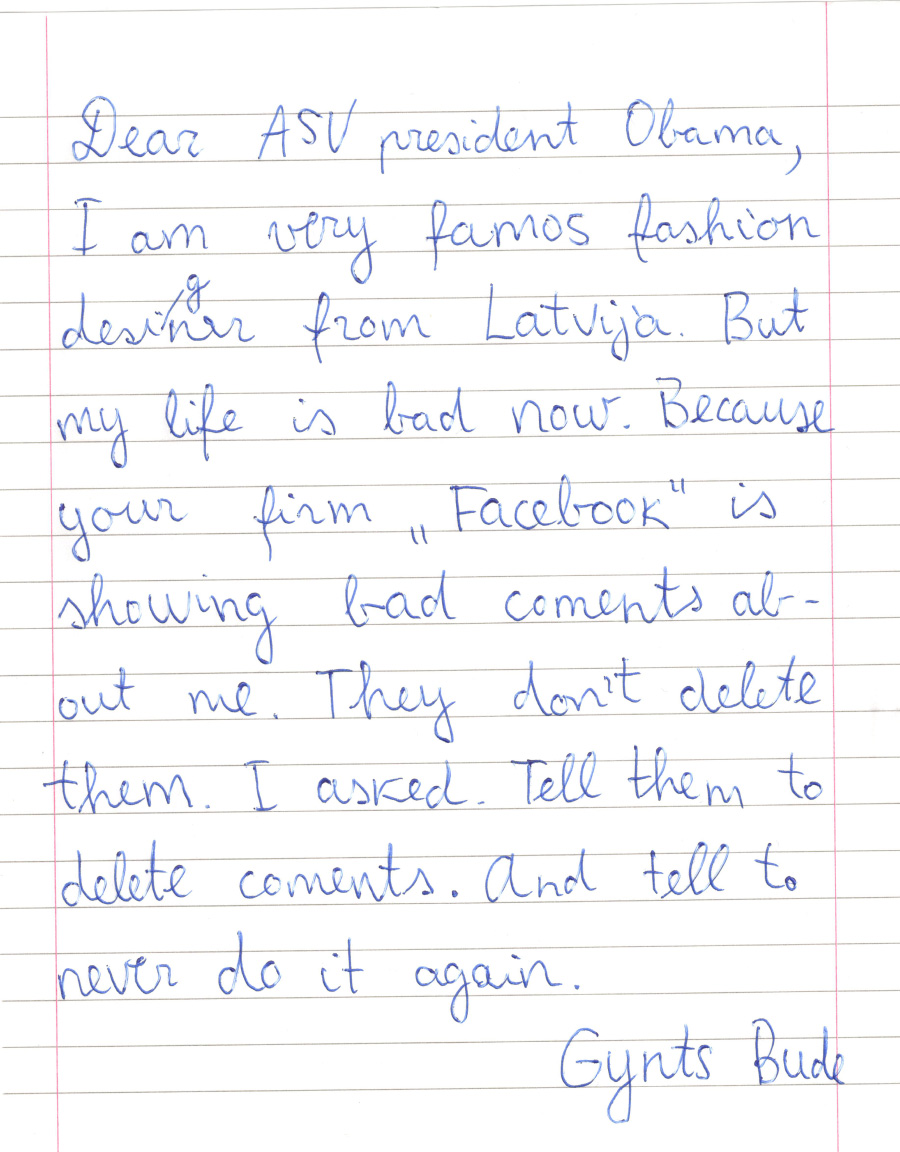 Dear ASV president Obama,
I am very famos fashion
designer from Latvija. But
my life is bad now. Because
your firm „Facebook" is
showing bad coments ab-
out me. They don't delete
them. I asked. Tell them to
delete coments. And tell to
never do it again.
Gynts Bude